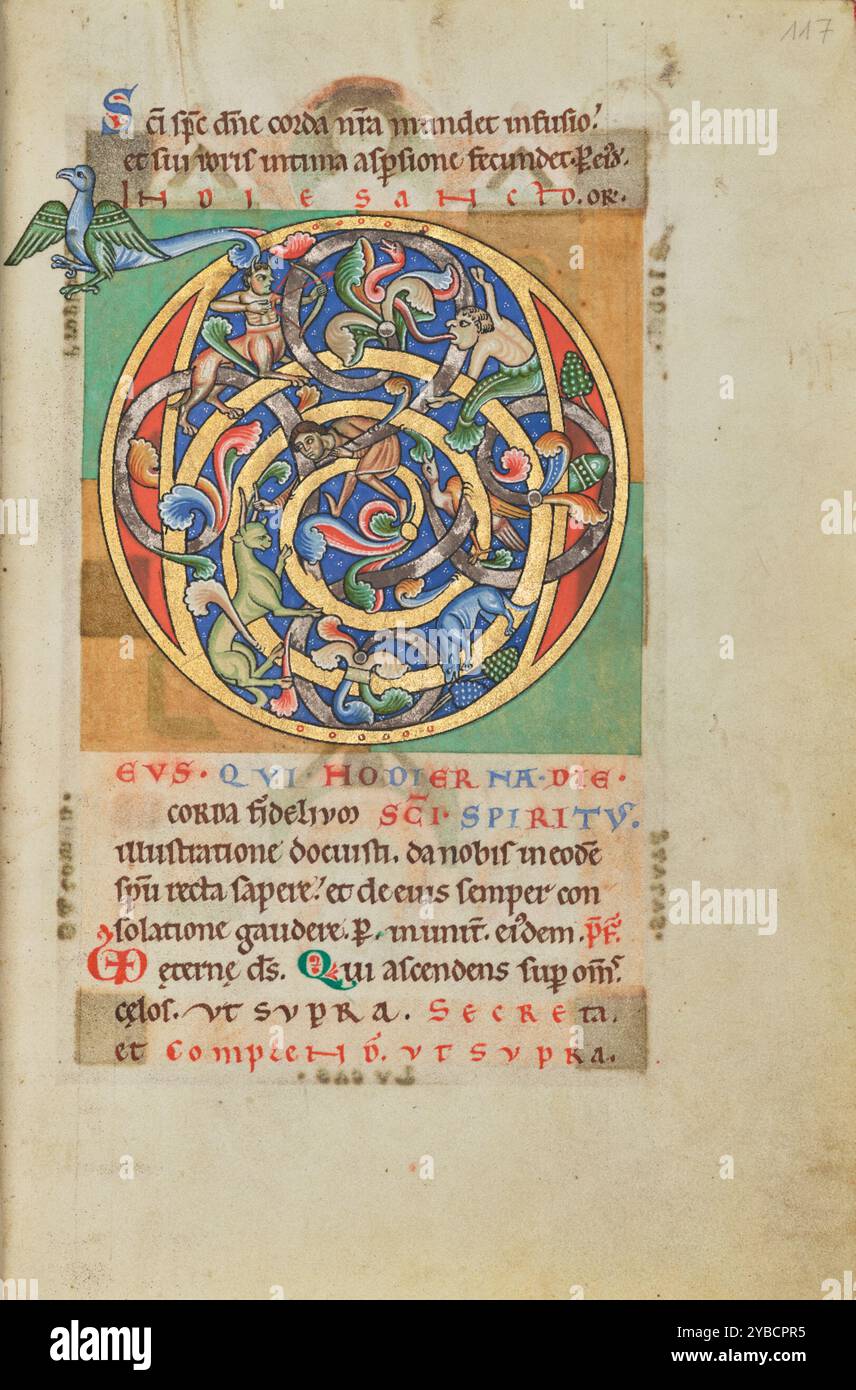 117
Sc̄i sp̄c dn̄e corda nr̄a mundet infusio.
et sui roris intima aspsione fecundet. P. eiꝰd.
IN DIE SANCTO. or.
EVS. QVI HODIERNA DIE.
corda fidelium SC̄I SPIRITV.
illustratione docuisti. da nobis in eodē
spū recta sapere. et de eius semper con
solatione gaudere. P. in unit̄. eiꝰdem. p̄f.
eternę ds̄. Qui ascendens sup om̄s.
cęlos. UT SUPRA. SECRETA.
et COMPLEND̄. UT SUPRA.
LVCAS
a
alamy
Image ID: 2YBCPR5
www.alamy.com